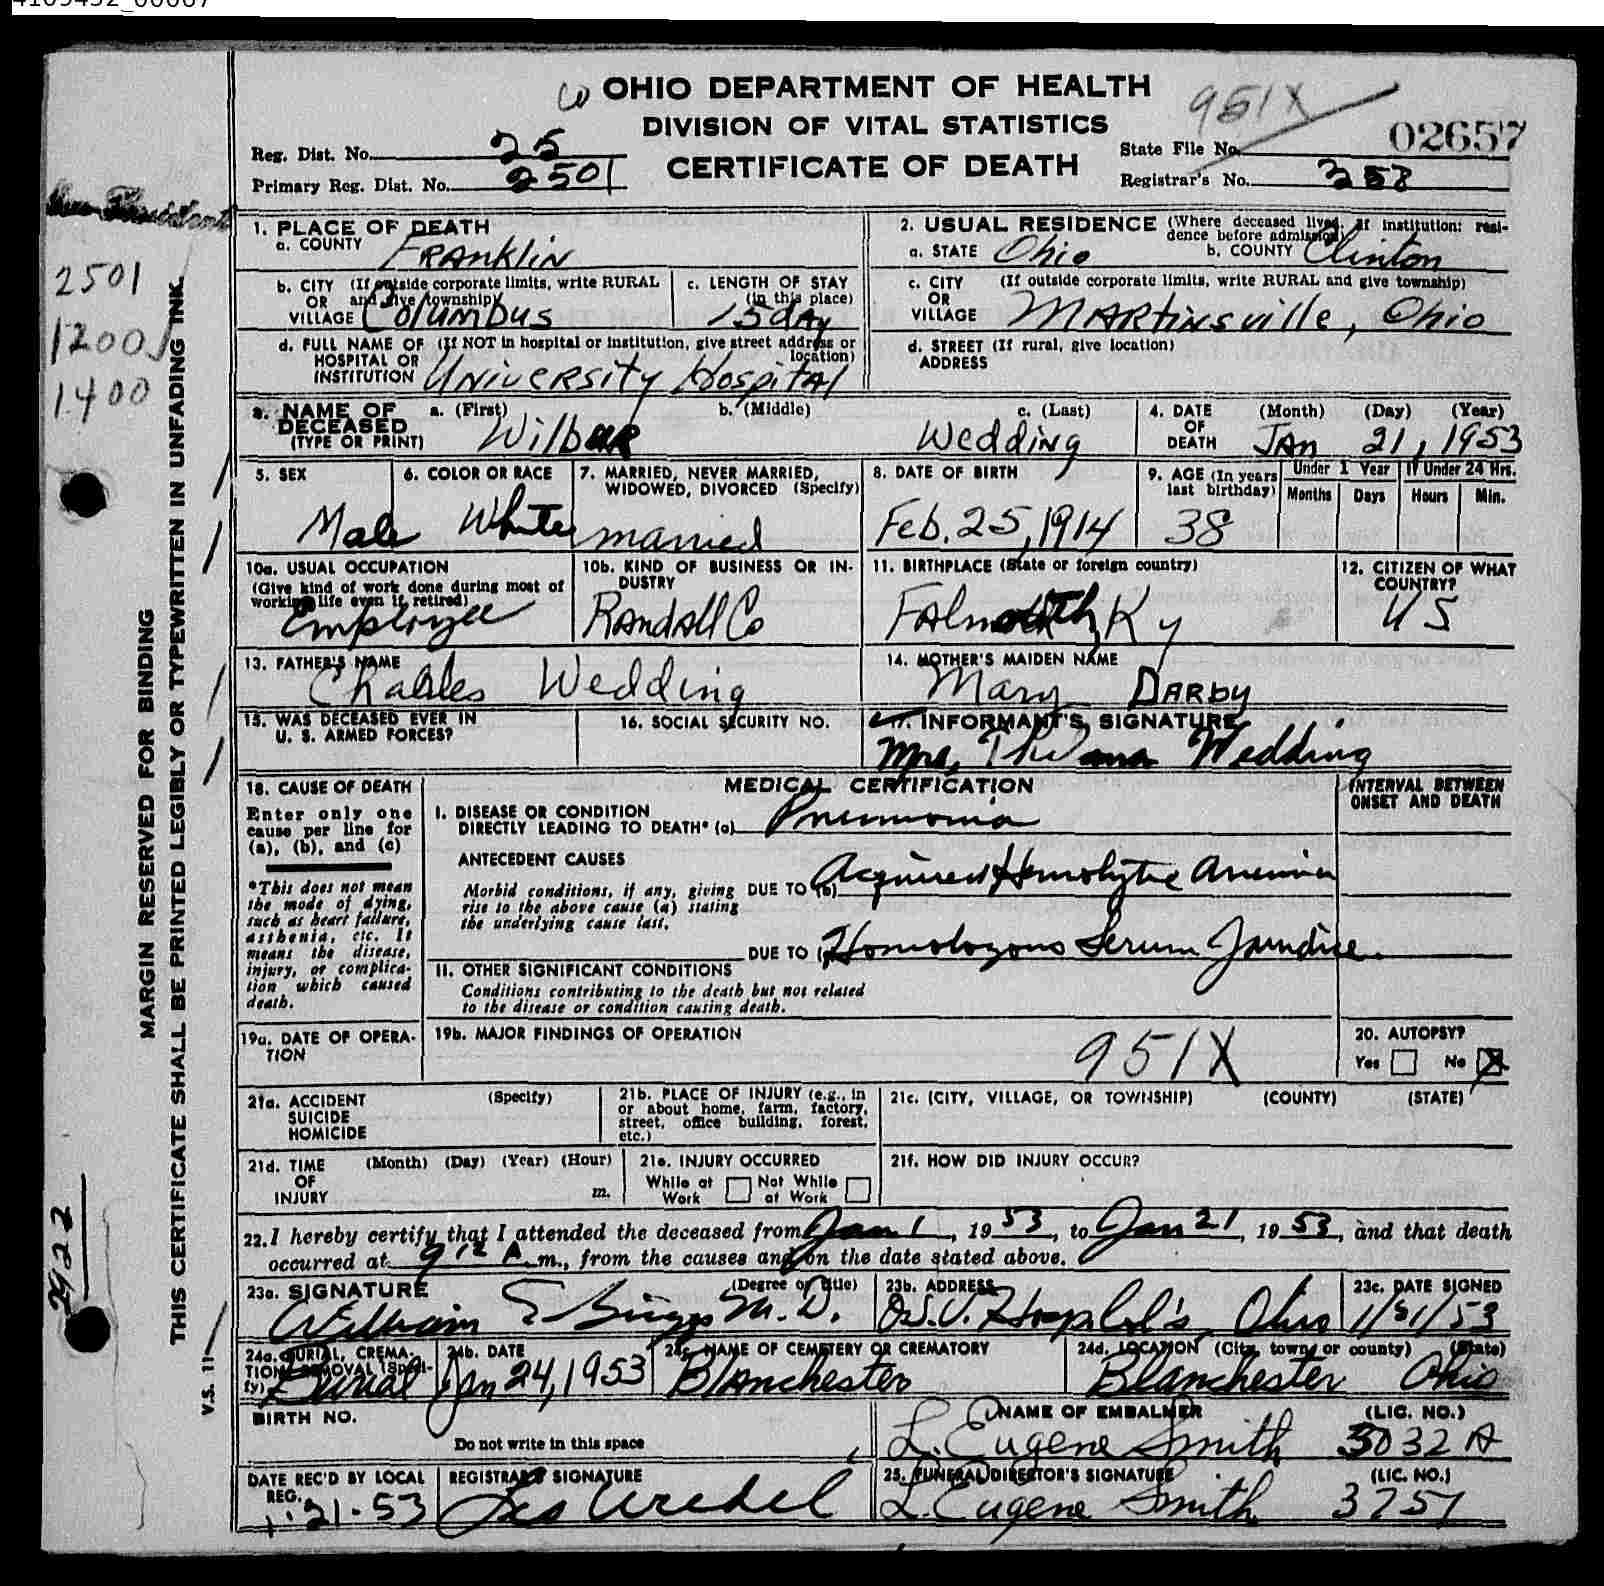 OHIO DEPARTMENT OF HEALTH
DIVISION OF VITAL STATISTICS
CERTIFICATE OF DEATH
951X
Reg. Dist. No. 25
Primary Reg. Dist. No. 2501
State File No. 02657
Registrar's No. 258
2501
1200
1400
2922
MARGIN RESERVED FOR BINDING
THIS CERTIFICATE SHALL BE PRINTED LEGIBLY OR TYPEWRITTEN IN UNFADING INK.
V.S. 11
1. PLACE OF DEATH
a. COUNTY Franklin
2. USUAL RESIDENCE (Where deceased lived. If institution: residence before admission)
a. STATE Ohio b. COUNTY Clinton
b. CITY (If outside corporate limits, write RURAL
OR and give township)
VILLAGE Columbus
c. LENGTH OF STAY
(in this place)
15 day
c. CITY (If outside corporate limits, write RURAL and give township)
OR
VILLAGE Martinsville, Ohio
d. FULL NAME OF (If NOT in hospital or institution, give street address or location)
HOSPITAL OR
INSTITUTION University Hospital
d. STREET (If rural, give location)
ADDRESS
3. NAME OF DECEASED
(TYPE OR PRINT)
a. (First) Wilbur
b. (Middle)
c. (Last) Wedding
4. DATE OF DEATH (Month) (Day) (Year)
Jan 21, 1953
5. SEX
Male
6. COLOR OR RACE
White
7. MARRIED, NEVER MARRIED,
WIDOWED, DIVORCED (Specify)
married
8. DATE OF BIRTH
Feb. 25, 1914
9. AGE (In years last birthday)
38
Under 1 Year
Months Days
If Under 24 Hrs.
Hours Min.
10a. USUAL OCCUPATION
(Give kind of work done during most of
working life even if retired)
Employee
10b. KIND OF BUSINESS OR INDUSTRY
Randall Co
11. BIRTHPLACE (State or foreign country)
Falmouth, Ky
12. CITIZEN OF WHAT COUNTRY?
US
13. FATHER'S NAME
Charles Wedding
14. MOTHER'S MAIDEN NAME
Mary Darby
15. WAS DECEASED EVER IN
U. S. ARMED FORCES?
16. SOCIAL SECURITY NO.
17. INFORMANT'S SIGNATURE
Mrs. Thelma Wedding
18. CAUSE OF DEATH
Enter only one
cause per line for
(a), (b), and (c)
*This does not mean
the mode of dying,
such as heart failure,
asthenia, etc. It
means the disease,
injury, or complica-
tion which caused
death.
MEDICAL CERTIFICATION
INTERVAL BETWEEN
ONSET AND DEATH
I. DISEASE OR CONDITION
DIRECTLY LEADING TO DEATH* (a) Pneumonia
ANTECEDENT CAUSES
Morbid conditions, if any, giving
rise to the above cause (a) stating
the underlying cause last.
DUE TO (b) Acquired Hemolytic Anemia
DUE TO Homologous Serum Jaundice.
II. OTHER SIGNIFICANT CONDITIONS
Conditions contributing to the death but not related
to the disease or condition causing death.
19a. DATE OF OPERA-
TION
19b. MAJOR FINDINGS OF OPERATION
951X
20. AUTOPSY?
Yes No X
21a. ACCIDENT (Specify)
SUICIDE
HOMICIDE
21b. PLACE OF INJURY (e.g., in
or about home, farm, factory,
street, office building, forest,
etc.)
21c. (CITY, VILLAGE, OR TOWNSHIP) (COUNTY) (STATE)
21d. TIME (Month) (Day) (Year) (Hour)
OF
INJURY m.
21e. INJURY OCCURRED
While at Work Not While at Work
21f. HOW DID INJURY OCCUR?
22. I hereby certify that I attended the deceased from Jan 1, 1953, to Jan 21, 1953, and that death
occurred at 9 12 A.m., from the causes and on the date stated above.
23a. SIGNATURE (Degree or title)
William M.D.
23b. ADDRESS
Ohio
23c. DATE SIGNED
24a. BURIAL, CREMA-
TION, REMOVAL (Speci-
fy) Burial
24b. DATE
Jan 24, 1953
24c. NAME OF CEMETERY OR CREMATORY
Blanchester
24d. LOCATION (City, town, or county) (State)
Blanchester Ohio
BIRTH NO.
Do not write in this space
NAME OF EMBALMER (LIC. NO.)
L. Eugene Smith 5032 A
DATE REC'D BY LOCAL
REG.
1-21-53
REGISTRAR'S SIGNATURE
25. FUNERAL DIRECTOR'S SIGNATURE (LIC. NO.)
L. Eugene Smith 3751